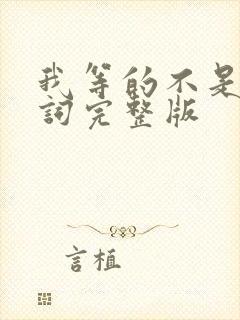 我等的不是
詞完整版
言植